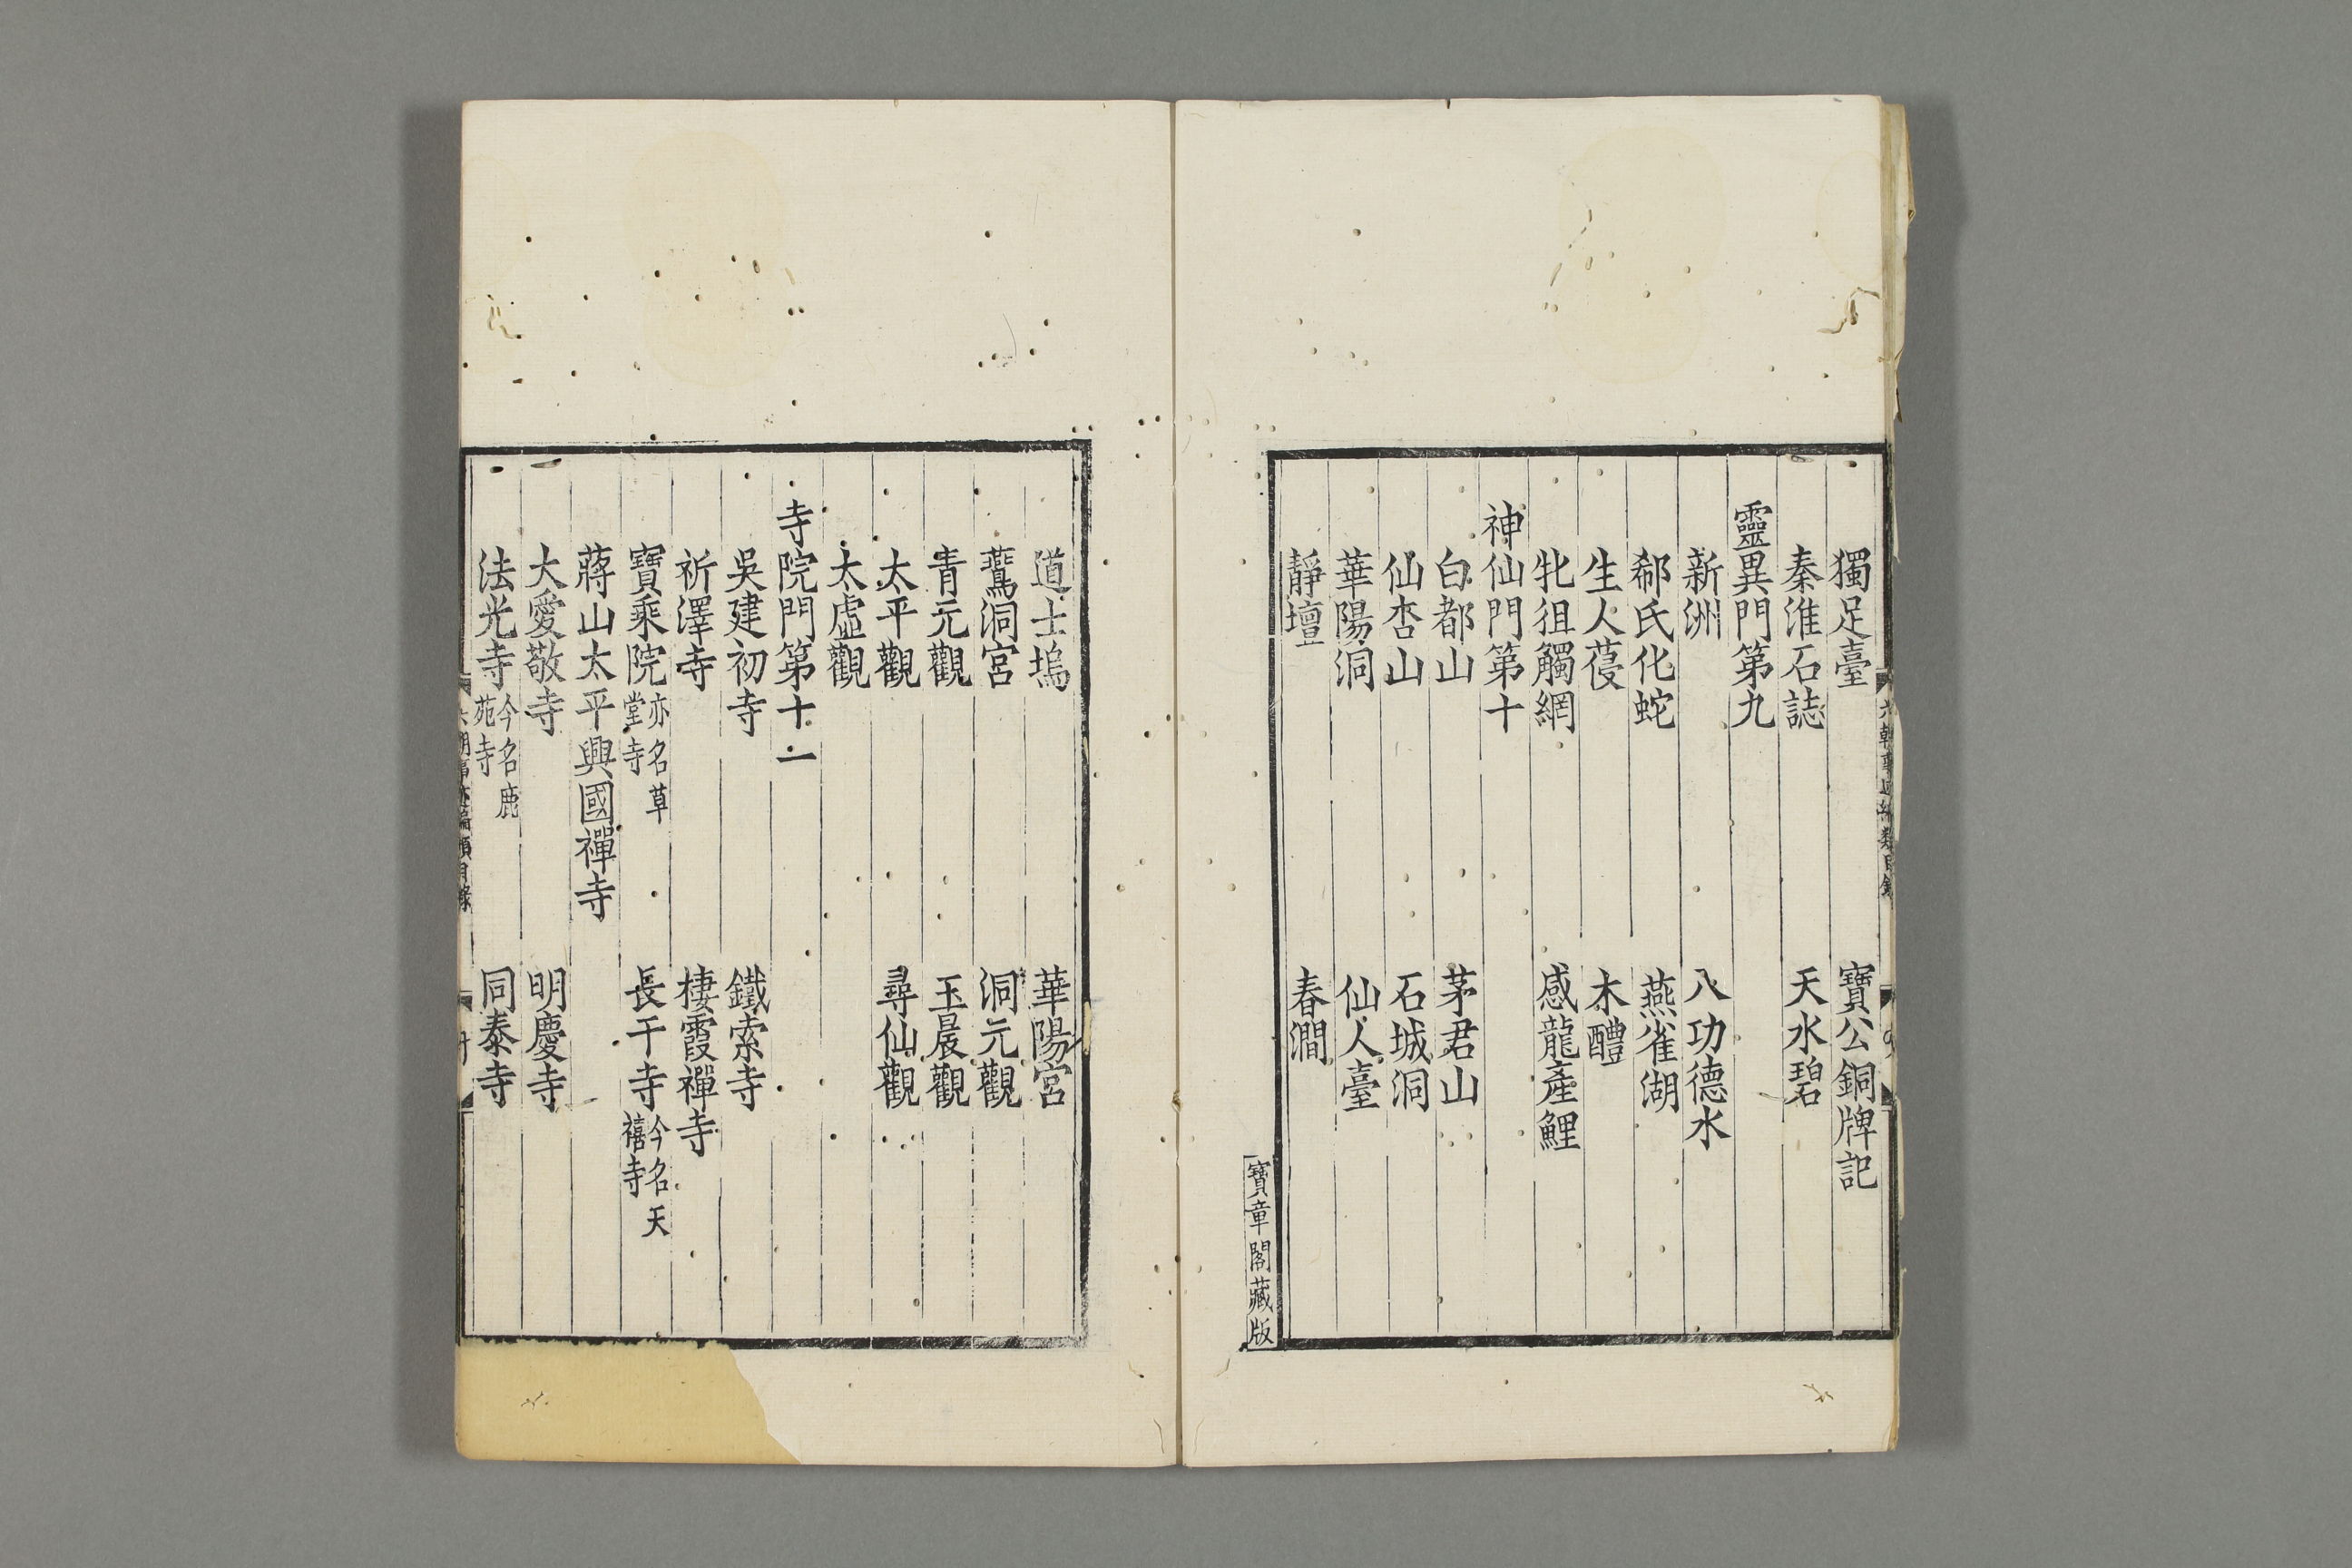 獨足臺　寶公銅牌記
秦淮石誌　天水碧
靈異門第九
新洲　八功德水
郗氏化蛇　燕雀湖
生人葠　木醴
牝徂觸網　感龍產鯉
神仙門第十
白都山　茅君山
仙杏山　石城洞
華陽洞　仙人臺
靜壇　春澗
寶章閣藏版
道士塢　華陽宮
鷰洞宮　洞元觀
青元觀　玉晨觀
太平觀　尋仙觀
太虛觀
寺院門第十一
吳建初寺　鐵索寺
祈澤寺　棲霞禪寺
寶乘院亦名草堂寺　長干寺今名天禧寺
蔣山太平興國禪寺
大愛敬寺　明慶寺
法光寺今名鹿苑寺　同泰寺